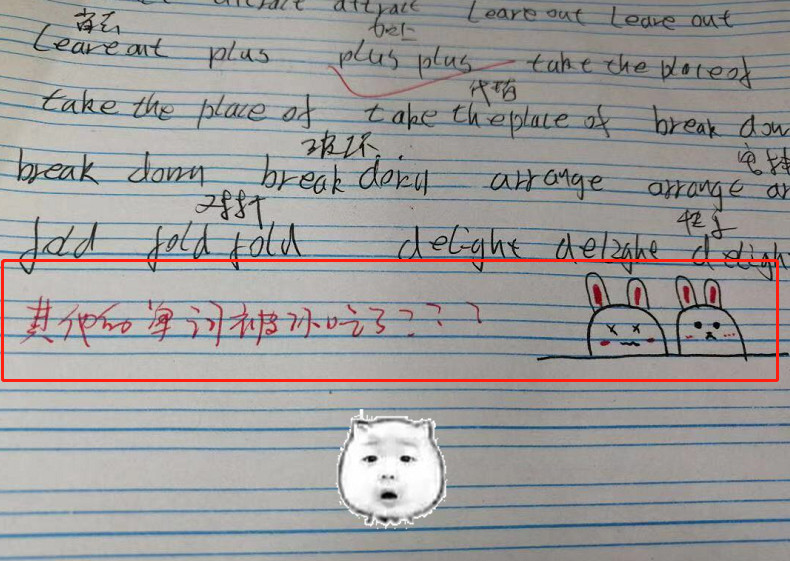 attract attract Leave out Leave out
加上
Leave out plus plus plus take the place of
代替
take the place of take the place of break dow
破坏
break down break down arrange arrange ar
对折
fold fold fold delight delight deligh
其他的单词被你吃了？？？